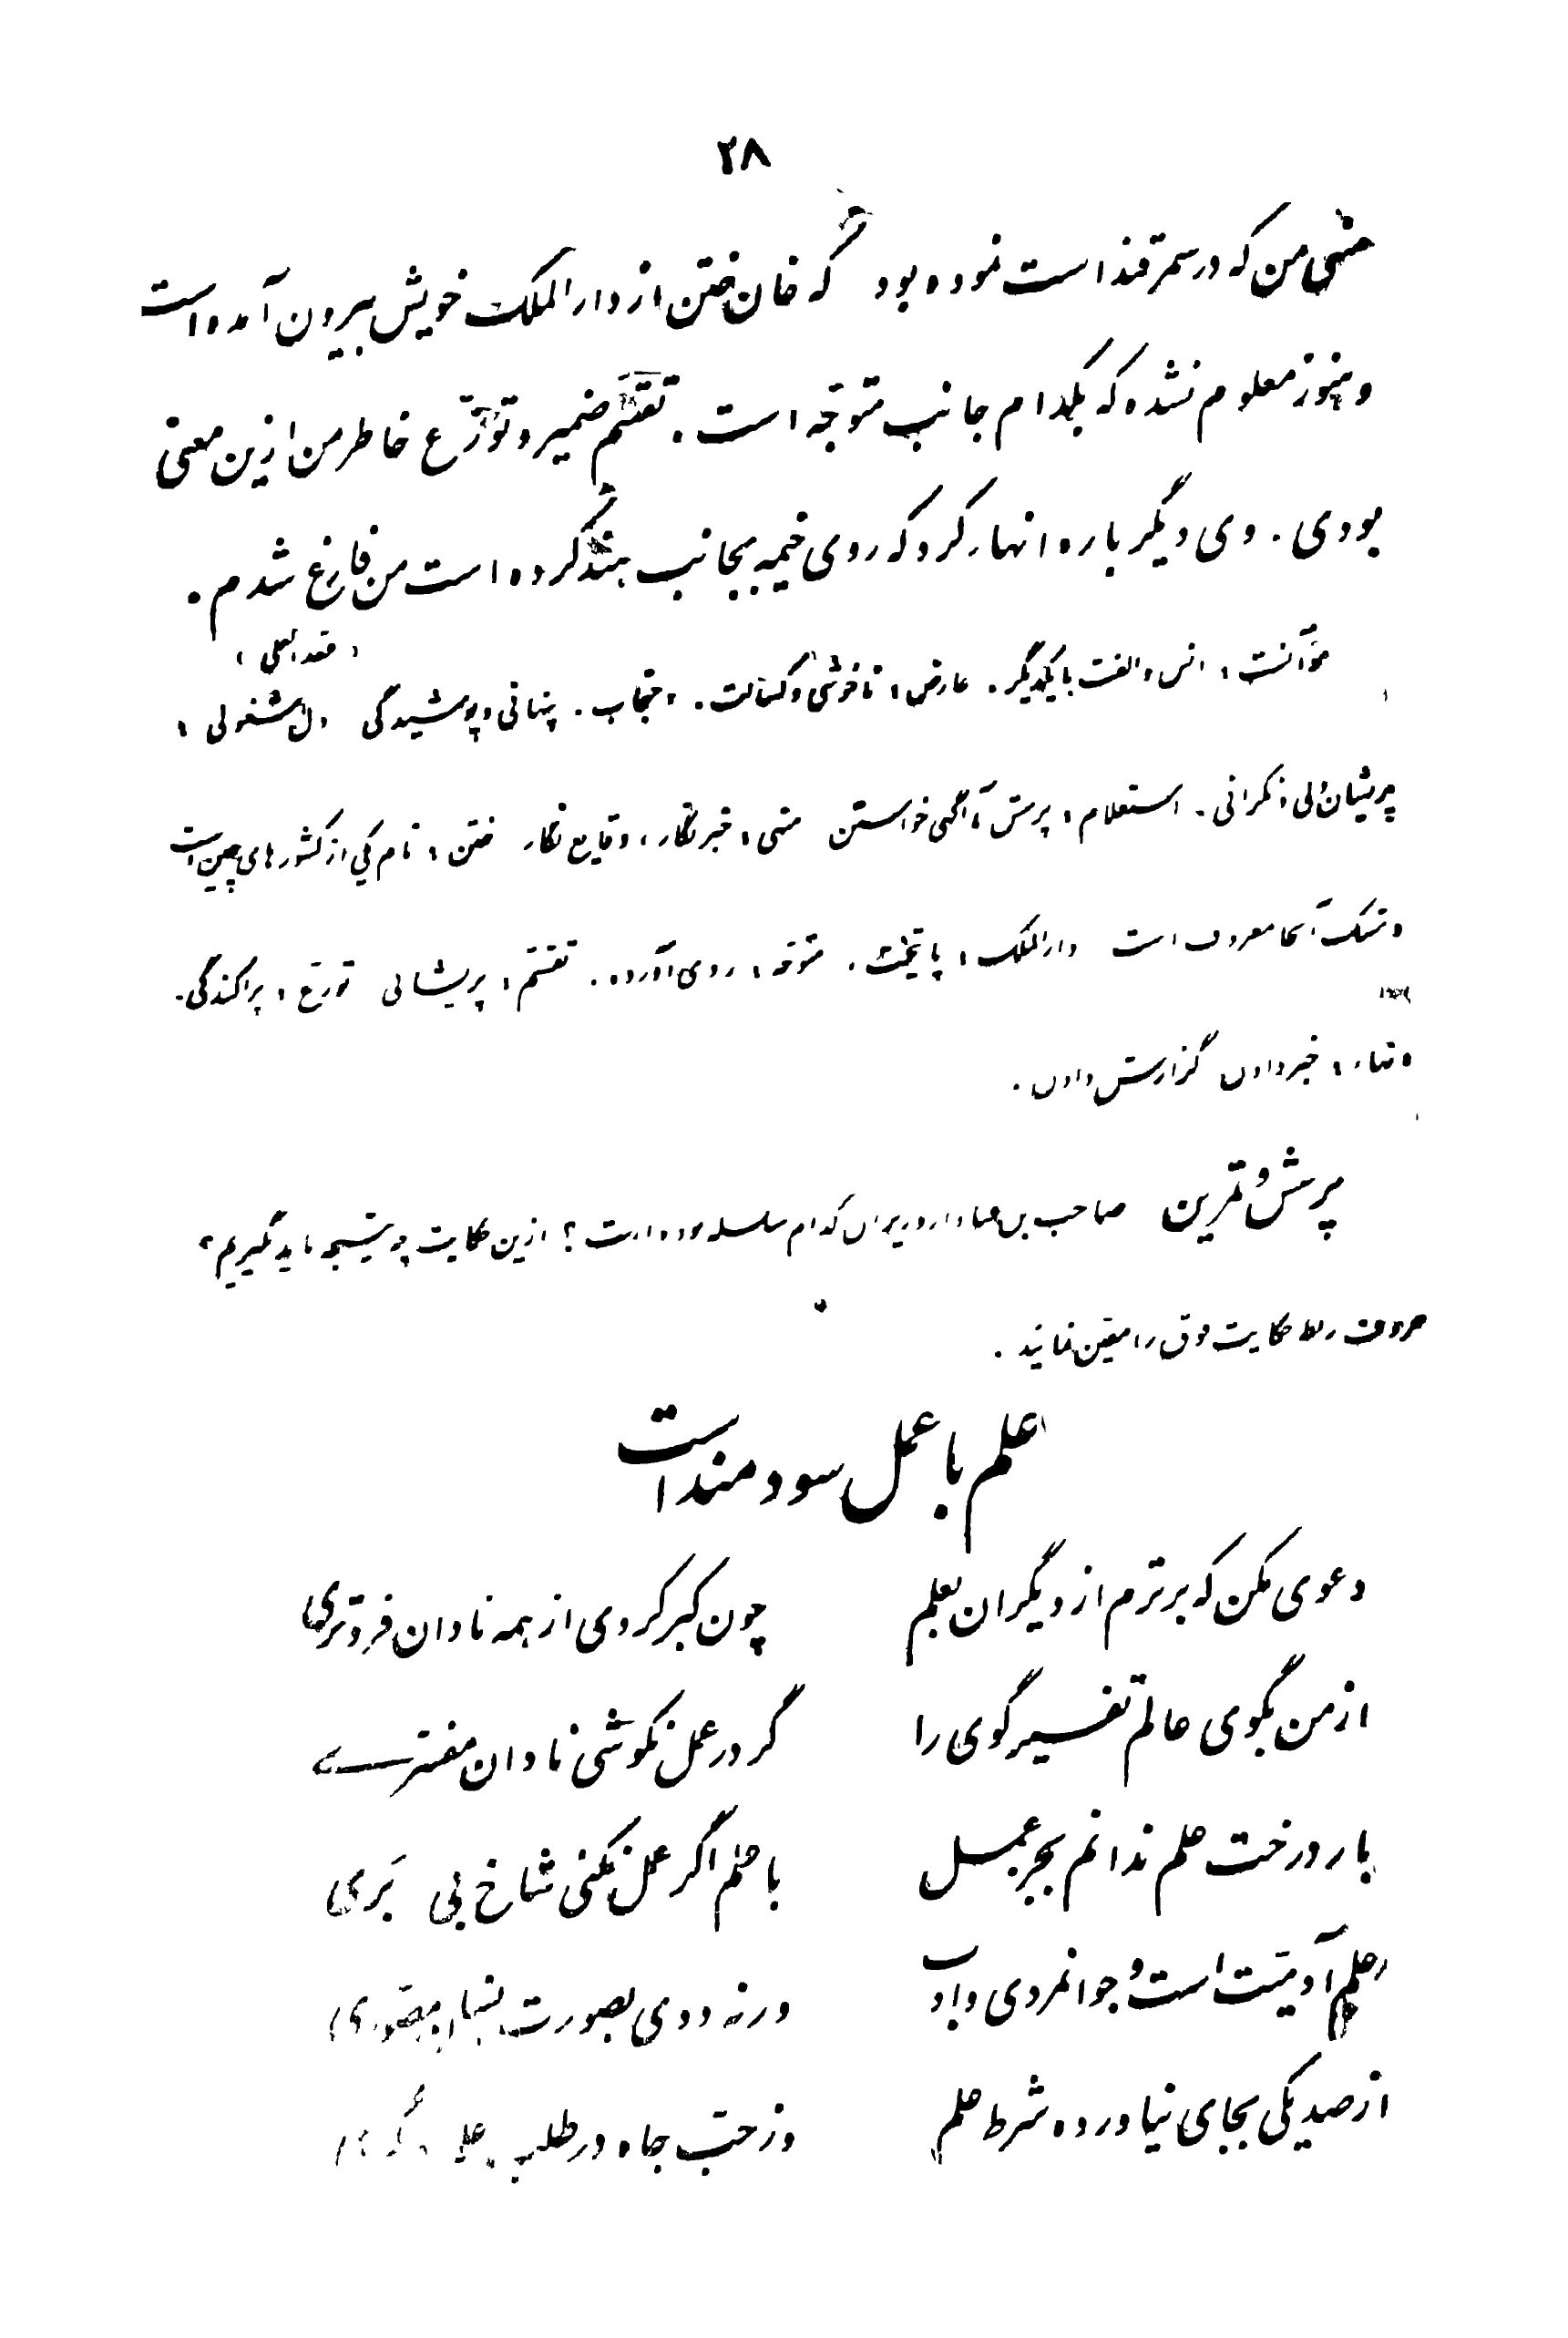 ۲۸
منهی من که در سمرقند است نموده بود که خان ختن از دار الملک خویش بیرون آمده است
و هنوز معلوم نشده که بکدام جانب متوجّه است. تقسّم ضمیر و توزّع خاطر من ازین معنی
بودی. دی دیگر باره انهاء کرد که روی خیمه بجانب هند کرده است من فارغ شدم.
(عقد العلی)
مؤآنست، انس و الفت با یکدیگر. عارض، ناخوشی و کسالت. احتجاب. پنهانی و پوشیدگی دل مشغولی،
پریشان دلی و نگرانی. استعلام، پرسش و آگهی خواستن منهی، خبرنگار، وقایع نگار ختن، نام یکی از کشورهای چین است
و مشک آنجا معروف است دارالملک، پایتخت، متوجه، روی آورده. تقسّم، پریشانی توزّع، پراکندگی.
انهاء، خبر دادن گزارش دادن.
پرسش و تمرین صاحب بن عباد از وزیران کدام سلسله بوده است؟ ازین حکایت چه نتیجه باید بگیریم؟
حروف ربط حکایت فوق را معین نمائید.
علم با عمل سودمند است
دعوی مکن که برترم از دیگران بعلم چون کبر کردی از همه نادان فروتری
از من بگوی عالم تفسیر گوی را گر در عمل نکوشی نادان مفسّری
بار درخت علم ندانم بجز عمل با علم اگر عمل نکنی شاخ بی بَری
علم آدمیّت است و جوانمردی و ادب ورنه ددی بصورت انسان مصوّری
از صد یکی بجای نیاورده شرط علم وز حبّ جاه در طلب علم